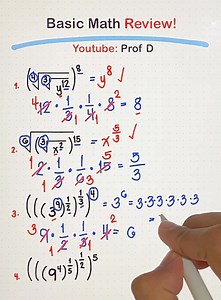 Basic Math Review!
Youtube: Prof D
1. (⁴√(³√(y¹²)))⁸ = y⁸ ✓
12 · 1/3 · 1/4 · 8 = 8
2. ⁶√((³√(x²))¹⁵) = x^(5/3) ✓
2 · 1/3 · 1/6 · 15 = 5/3
3. (((3⁹)^(1/2))^(1/3))⁴ = 3⁶ = 3·3·3·3·3·3
9 · 1/2 · 1/3 · 4 = 6
=
4. (((9⁴)^(1/5))^(1/2))⁵